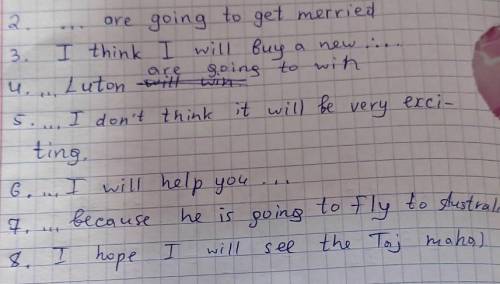 2. ... are going to get merried
3. I think I will buy a new ....
are going to win
4. ... Luton will win
5. ... I don't think it will be very exci-
ting.
6. ... I will help you ...
7. ... because he is going to fly to Austral
8. I hope I will see the Taj mahal